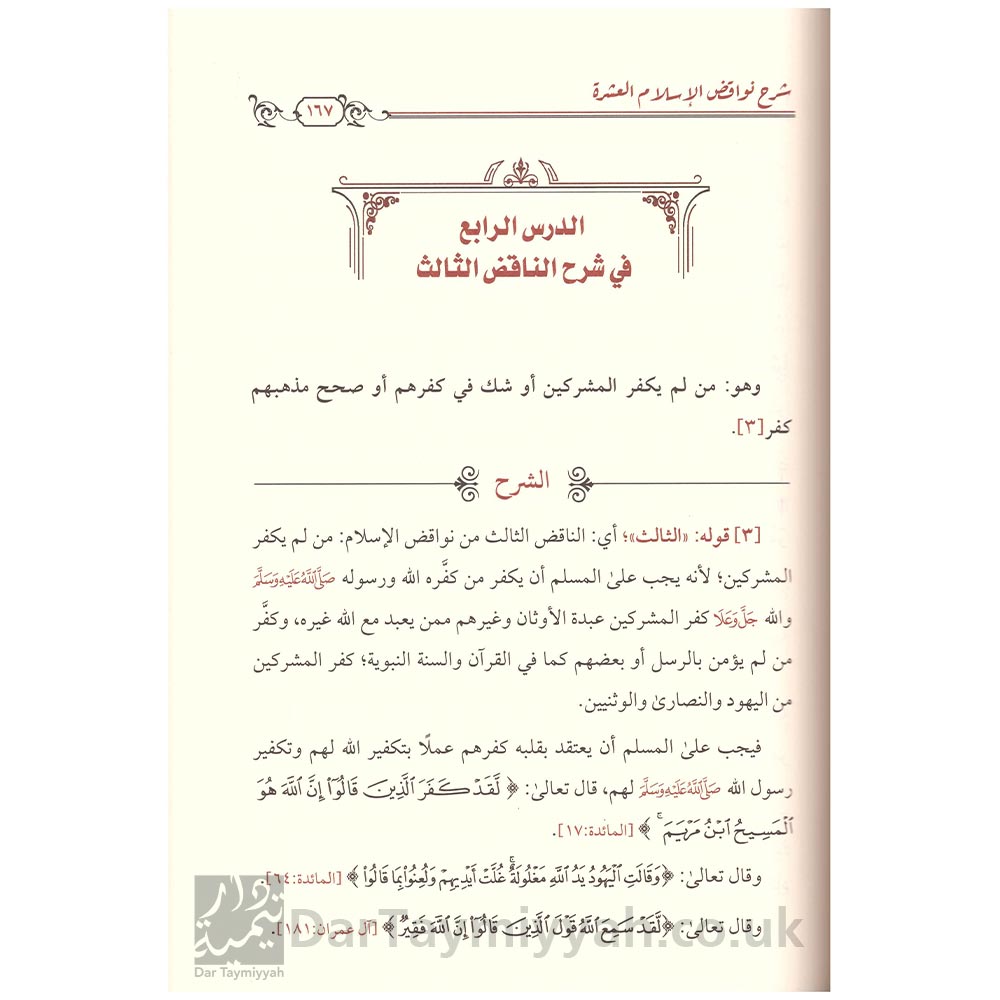 شرح نواقض الإسلام العشرة
١٦٧
الدرس الرابع
في شرح الناقض الثالث
وهو: من لم يكفر المشركين أو شك في كفرهم أو صحح مذهبهم
كفر[٣].
الشرح
[٣] قوله: «الثالث»؛ أي: الناقض الثالث من نواقض الإسلام: من لم يكفر
المشركين؛ لأنه يجب علىٰ المسلم أن يكفر من كفَّره الله ورسوله صَلَّىٱللَّهُعَلَيْهِوَسَلَّمَ
والله جَلَّوَعَلَا كفر المشركين عبدة الأوثان وغيرهم ممن يعبد مع الله غيره، وكفَّر
من لم يؤمن بالرسل أو بعضهم كما في القرآن والسنة النبوية؛ كفر المشركين
من اليهود والنصارىٰ والوثنيين.
فيجب علىٰ المسلم أن يعتقد بقلبه كفرهم عملًا بتكفير الله لهم وتكفير
رسول الله صَلَّىٱللَّهُعَلَيْهِوَسَلَّمَ لهم، قال تعالىٰ: ﴿ لَّقَدۡ كَفَرَ ٱلَّذِينَ قَالُوٓاْ إِنَّ ٱللَّهَ هُوَ
ٱلۡمَسِيحُ ٱبۡنُ مَرۡيَمَۚ ﴾ [المائدة:١٧].
وقال تعالىٰ: ﴿وَقَالَتِ ٱلۡيَهُودُ يَدُ ٱللَّهِ مَغۡلُولَةٌۚ غُلَّتۡ أَيۡدِيهِمۡ وَلُعِنُواْ بِمَا قَالُواْ ﴾ [المائدة:٦٤].
وقال تعالىٰ: ﴿لَّقَدۡ سَمِعَ ٱللَّهُ قَوۡلَ ٱلَّذِينَ قَالُوٓاْ إِنَّ ٱللَّهَ فَقِيرٞ ﴾ [آل عمران:١٨١].
دار تيمية
Dar Taymiyyah
DarTaymiyyah.co.uk